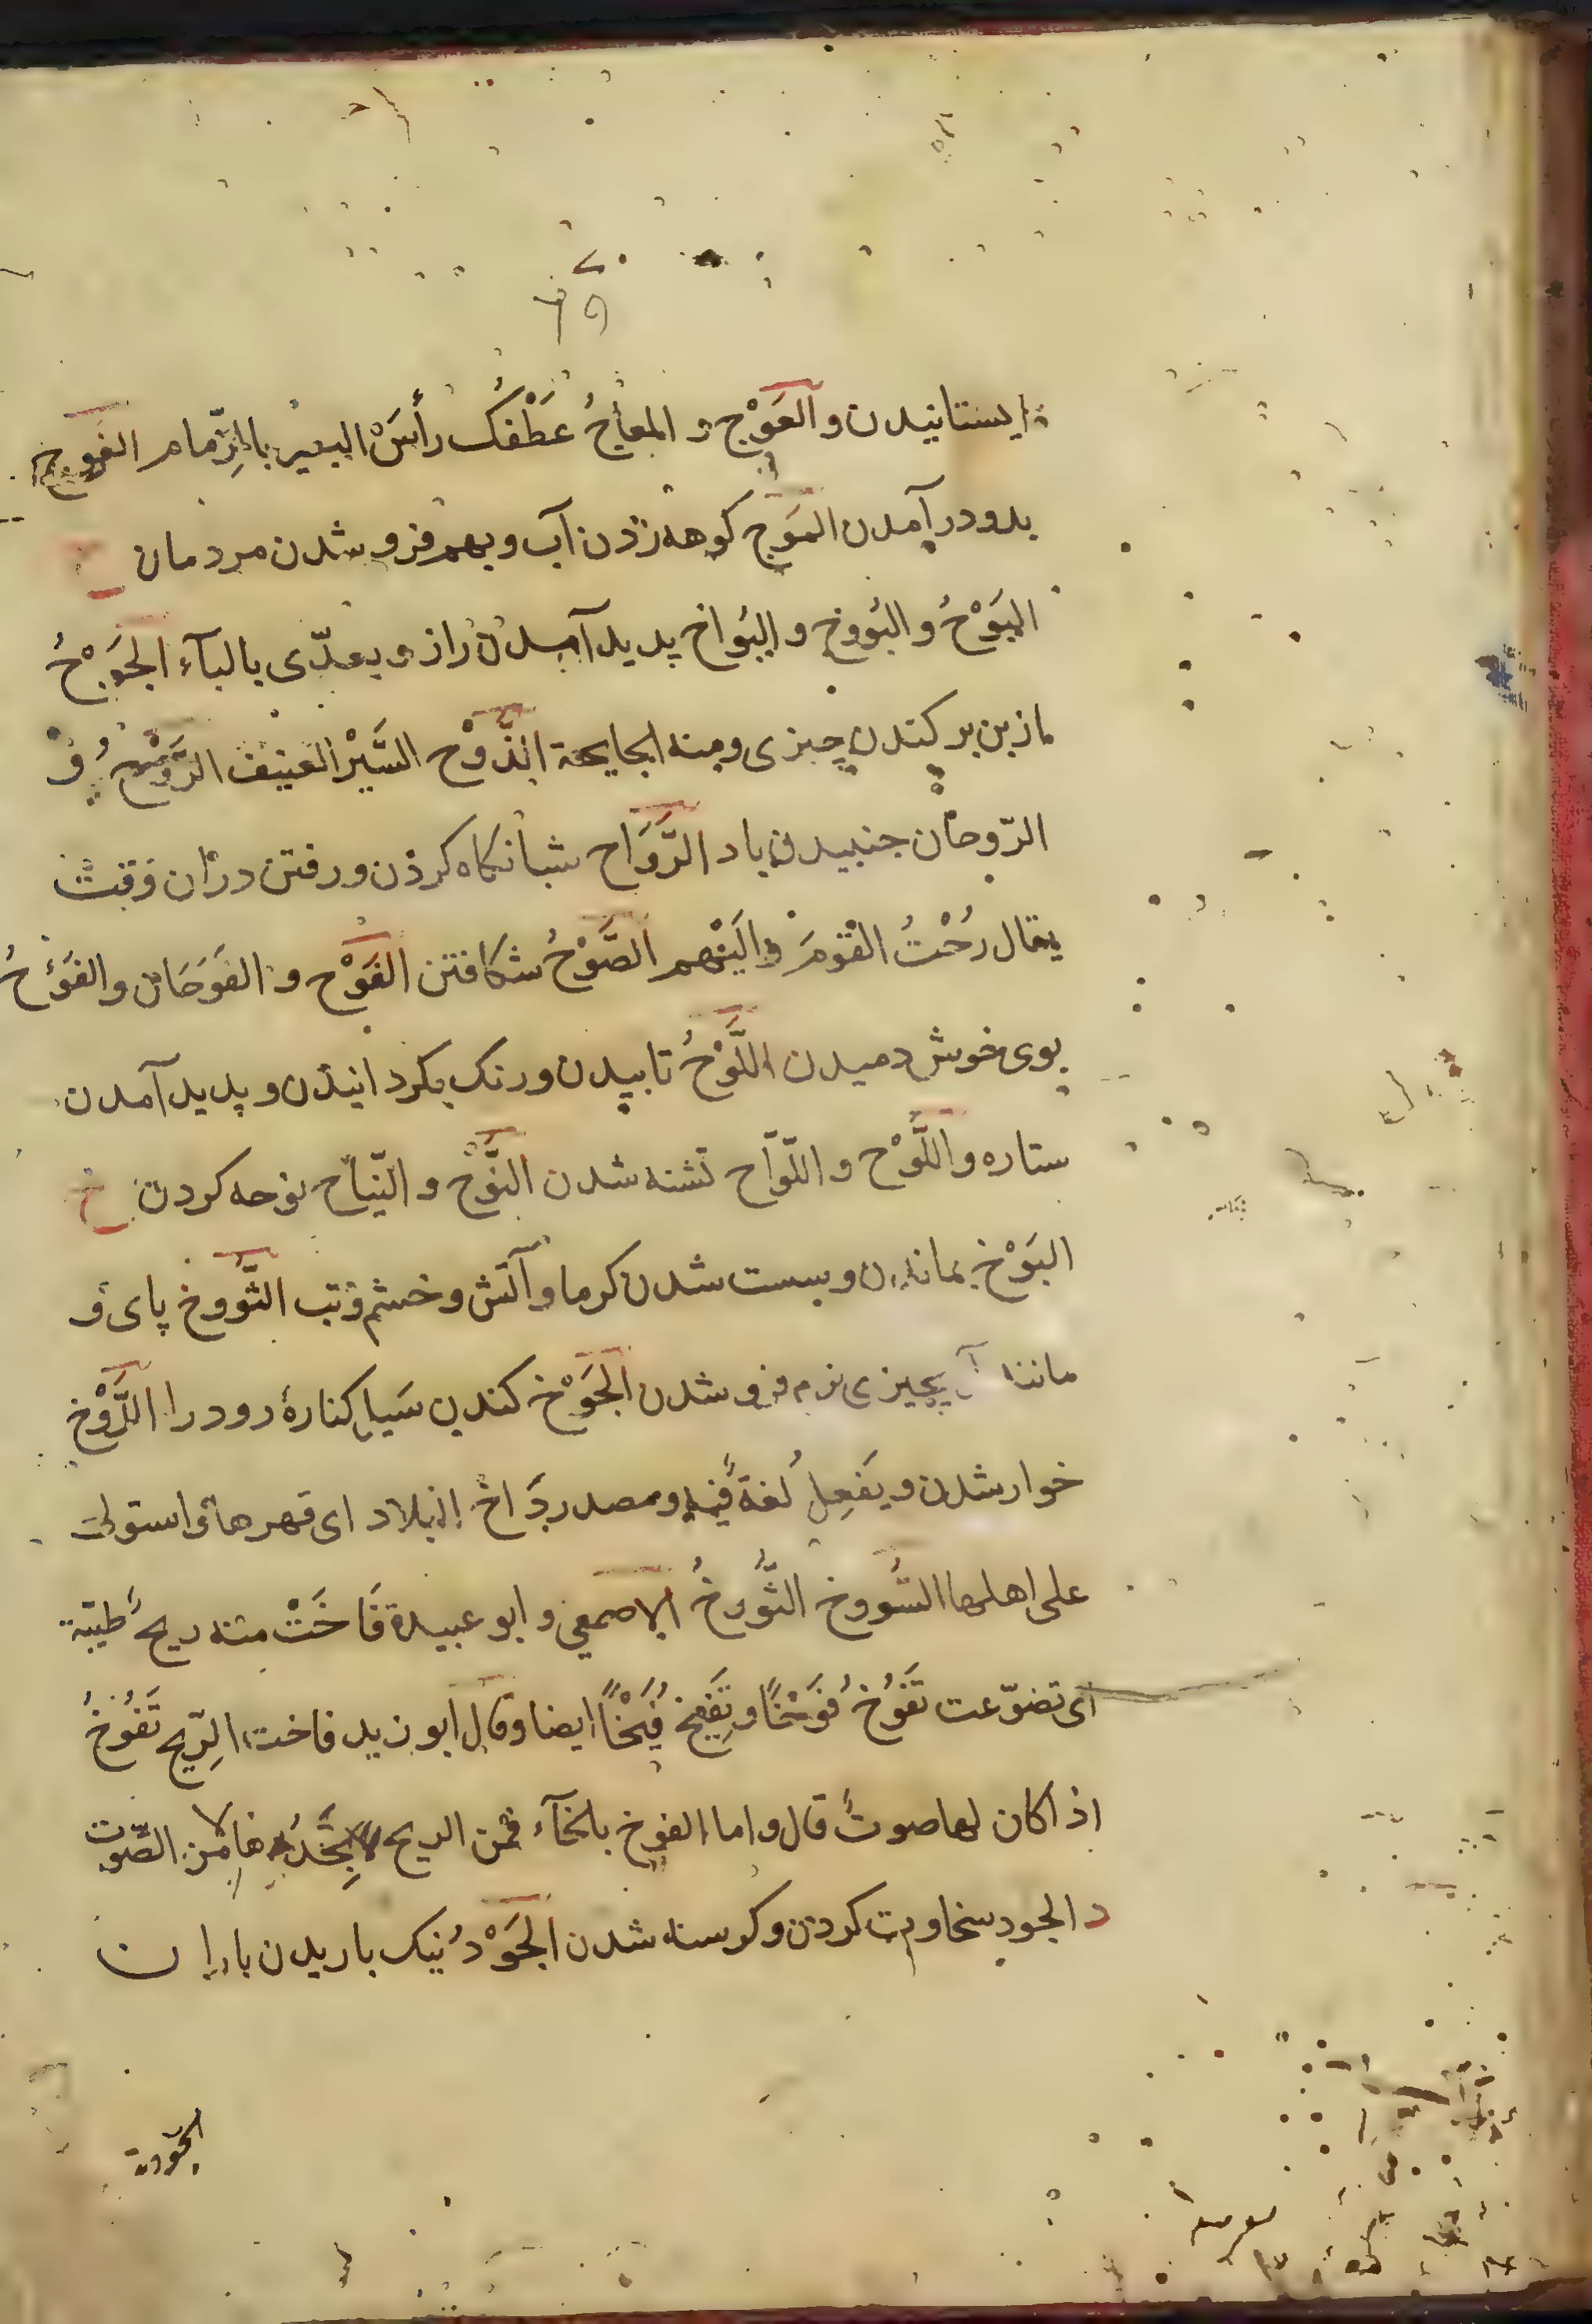 ۶۹
ایستانیدن و العَوْج و المعاجُ عَطْفُکَ رأسَ البعیر بالزِّمام الفَوج
بدو درآمدن المَوج کوهه زدن آب و بهم فرو شدن مردمان
البَوْحُ و البُووح و البَواح پدید آمدن راز و یعدّی بالبآء الجَوْحُ
از بن برکندن چیزی و منه الجایحة الذَّوْح السَّیْر العنیف الرَّوْحُ و
الرّوحان جنبیدن باد الرَّوَاح شبانکاه کرذن و رفتن دران وقت
یقال رُحْتُ القَومَ و الَیْهم الصَّوْحُ شکافتن الفَوْح و الفَوَحَان و الفَؤحُ
بوی خوش دمیدن اللَّوْحُ تابیدن و رنک بکردانیذن و پدید آمدن
ستاره و اللَّوْح و اللّوَاح تشنه شدن النَّوْح و النّیَاح نوحه کردن خ
البَوْخ بماندن و سست شدن کرما و آتش و خشم و تب الثَّووخ پای و
مانند آن بچیزی نرم فرو شدن الجَوْخ کندن سَیل کنارهٔ رود را الدَّوْخ
خوار شدن و یَفعِلُ لغةٌ فیه و مصدر دَاخ البلاد ای قهرها و استولی
علی اهلها السُّووخ الثُّووخُ الاصمعی و ابو عبیدة فَاخَتْ منه ریحٌ طیّبة
ای تضوّعت تَفوُخُ فَوَخْاً و تَفِیخ فَیْخاً ایضا و قال ابو زید فاخت الرِّیح تَفُوخُ
اذا کان لها صوتٌ قال و اما الفوخ بالخآء فمن الریح تجدها لا من الصّوت
د الجود سخاوت کردن و کرسنه شدن الجَوْدُ نیک باریدن باران
الجَوْدة